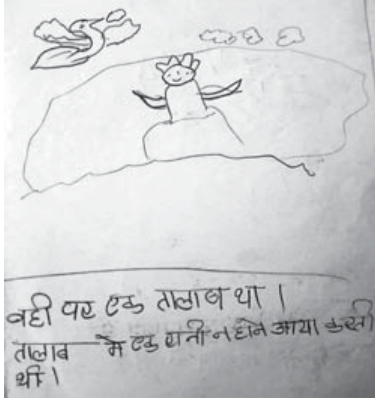 वही पर एक तालाब था ।
तालाब मे एक रानी नहोने आया करती
थी ।